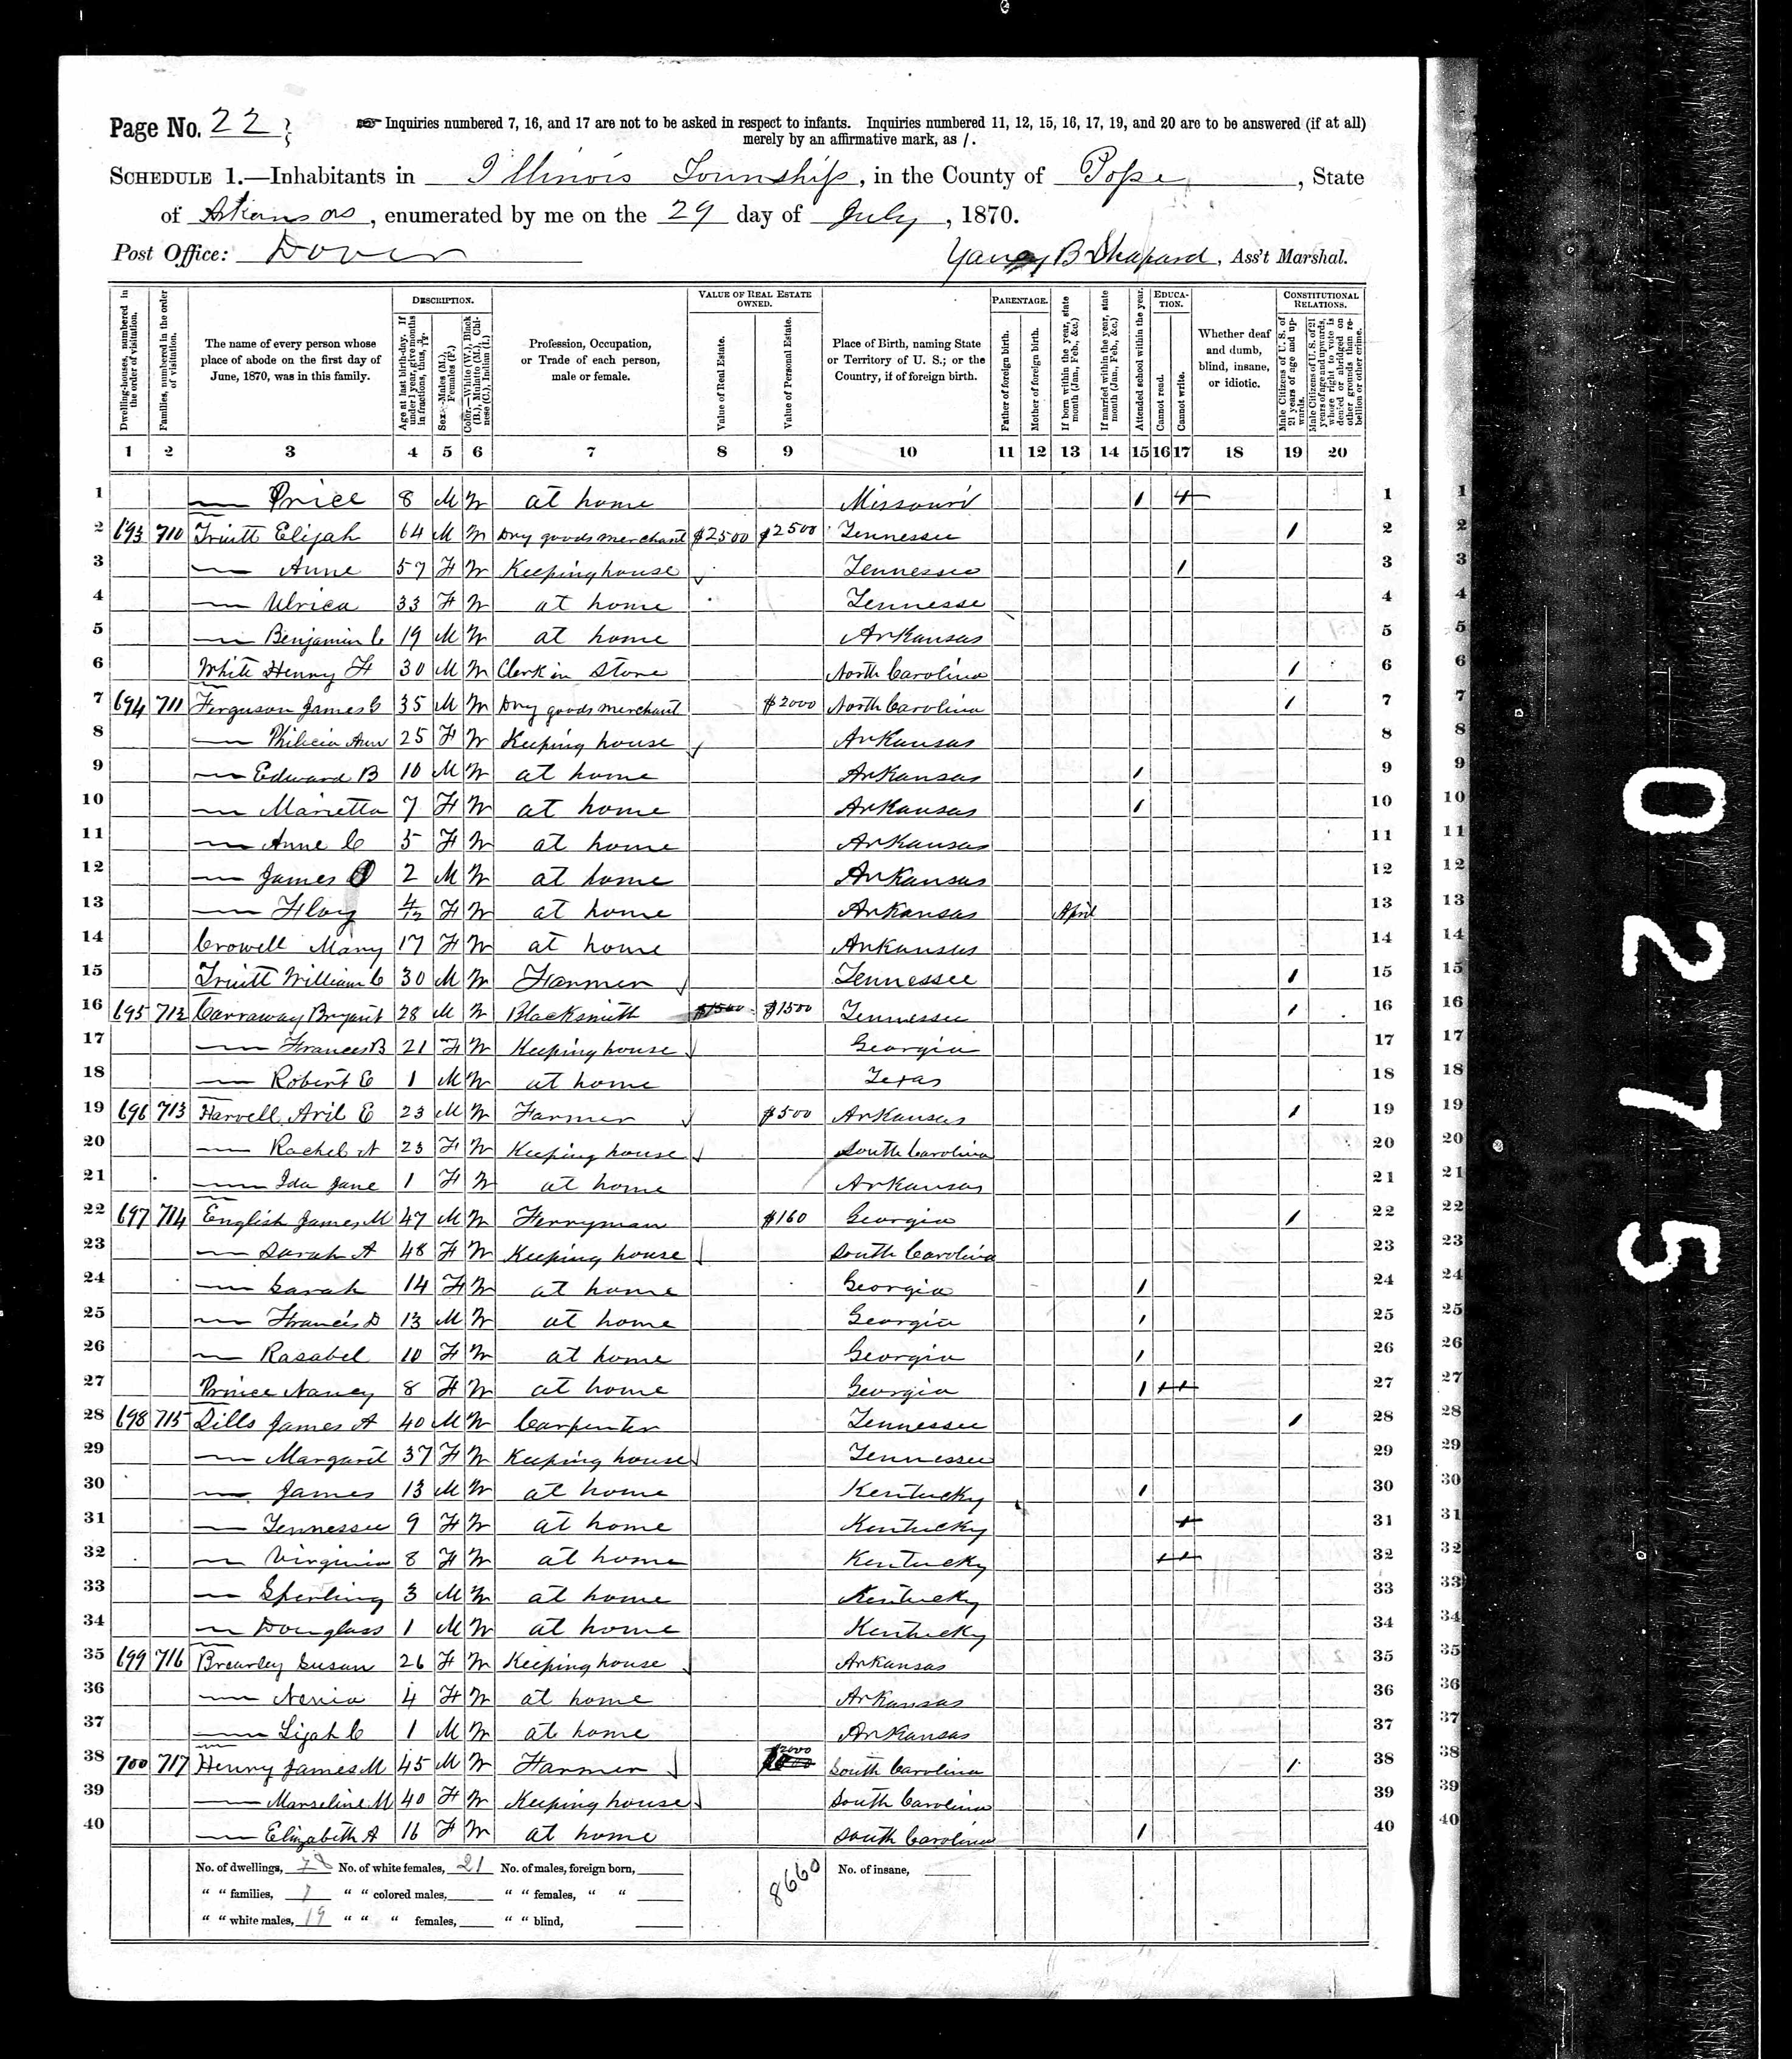 Page No. 22
Inquiries numbered 7, 16, and 17 are not to be asked in respect to infants. Inquiries numbered 11, 12, 15, 16, 17, 19, and 20 are to be answered (if at all)
merely by an affirmative mark, as /.
SCHEDULE 1.—Inhabitants in Illinois Township, in the County of Pope, State
of Arkansas, enumerated by me on the 29 day of July, 1870.
Post Office: Dover
B Shepard, Ass't Marshal.
Dwelling-houses, numbered in the order of visitation.
Families, numbered in the order of visitation.
The name of every person whose place of abode on the first day of June, 1870, was in this family.
DESCRIPTION.
Age at last birth-day. If under 1 year, give months in fractions, thus, 3/12.
Sex.—Males (M.), Females (F.)
Color.—White (W.), Black (B.), Mulatto (M.), Chinese (C.), Indian (I.)
Profession, Occupation, or Trade of each person, male or female.
VALUE OF REAL ESTATE OWNED.
Value of Real Estate.
Value of Personal Estate.
Place of Birth, naming State or Territory of U. S.; or the Country, if of foreign birth.
PARENTAGE.
Father of foreign birth.
Mother of foreign birth.
If born within the year, state month (Jan., Feb., &c.)
If married within the year, state month (Jan., Feb., &c.)
Attended school within the year.
EDUCATION.
Cannot read.
Cannot write.
Whether deaf and dumb, blind, insane, or idiotic.
CONSTITUTIONAL RELATIONS.
Male Citizens of U. S. of 21 years of age and upwards.
Male Citizens of U. S. of 21 years of age and upwards, whose right to vote is denied or abridged on other grounds than rebellion or other crime.
1 2 3 4 5 6 7 8 9 10 11 12 13 14 15 16 17 18 19 20
1 — Price 8 M W at home Missouri / + 1 1
2 693 710 Truitt Elijah 64 M W Dry goods merchant $2500 $2500 Tennessee / 2 2
3 — Anne 57 F W Keeping house Tennessee / 3 3
4 — Ulrica 33 F W at home Tennesse 4 4
5 — Benjamin C 19 M W at home Arkansas 5 5
6 White Henry F 30 M W Clerk in Store North Carolina / 6 6
7 694 711 Ferguson James C 35 M W Dry goods merchant $2000 North Carolina / 7 7
8 — Philicia Ann 25 F W Keeping house Arkansas 8 8
9 — Edward B 10 M W at home Arkansas / 9 9
10 — Marietta 7 F W at home Arkansas / 10 10
11 — Anne C 5 F W at home Arkansas 11 11
12 — James 2 M W at home Arkansas 12 12
13 — Floy 4/12 F W at home Arkansas April 13 13
14 Crowell Mary 17 F W at home Arkansas 14 14
15 Truitt William C 30 M W Farmer Tennessee / 15 15
16 695 712 Carraway Bryant 28 M W Blacksmith $1500 $1500 Tennessee / 16 16
17 — Frances B 21 F W Keeping house Georgia 17 17
18 — Robert E 1 M W at home Texas 18 18
19 696 713 Harvell Aril E 23 M W Farmer $500 Arkansas / 19 19
20 — Rachel A 23 F W Keeping house South Carolina 20 20
21 — Ida Jane 1 F W at home Arkansas 21 21
22 697 714 English James M 47 M W Ferryman $160 Georgia / 22 22
23 — Sarah A 48 F W Keeping house South Carolina 23 23
24 — Sarah 14 F W at home Georgia / 24 24
25 — Francis D 13 M W at home Georgia / 25 25
26 — Rasabel 10 F W at home Georgia / 26 26
27 Prince Nancy 8 F W at home Georgia / + + 27 27
28 698 715 Dills James A 40 M W Carpenter Tennessee / 28 28
29 — Margaret 37 F W Keeping house Tennessee 29 29
30 — James 13 M W at home Kentucky / 30 30
31 — Tennessee 9 F W at home Kentucky + 31 31
32 — Virginia 8 F W at home Kentucky + + 32 32
33 — Sperling 3 M W at home Kentucky 33 33
34 — Douglass 1 M W at home Kentucky 34 34
35 699 716 Brearley Susan 26 F W Keeping house Arkansas 35 35
36 — Nenia 4 F W at home Arkansas 36 36
37 — Lijah C 1 M W at home Arkansas 37 37
38 700 717 Henry James M 45 M W Farmer $2000 South Carolina / 38 38
39 — Marseline M 40 F W Keeping house South Carolina 39 39
40 — Elizabeth A 16 F W at home South Carolina / 40 40
No. of dwellings, No. of white females, 21 No. of males, foreign born, 8660 No. of insane,
" " families, " " colored males, " " females, " "
" " white males, 19 " " " females, " " blind,
0275